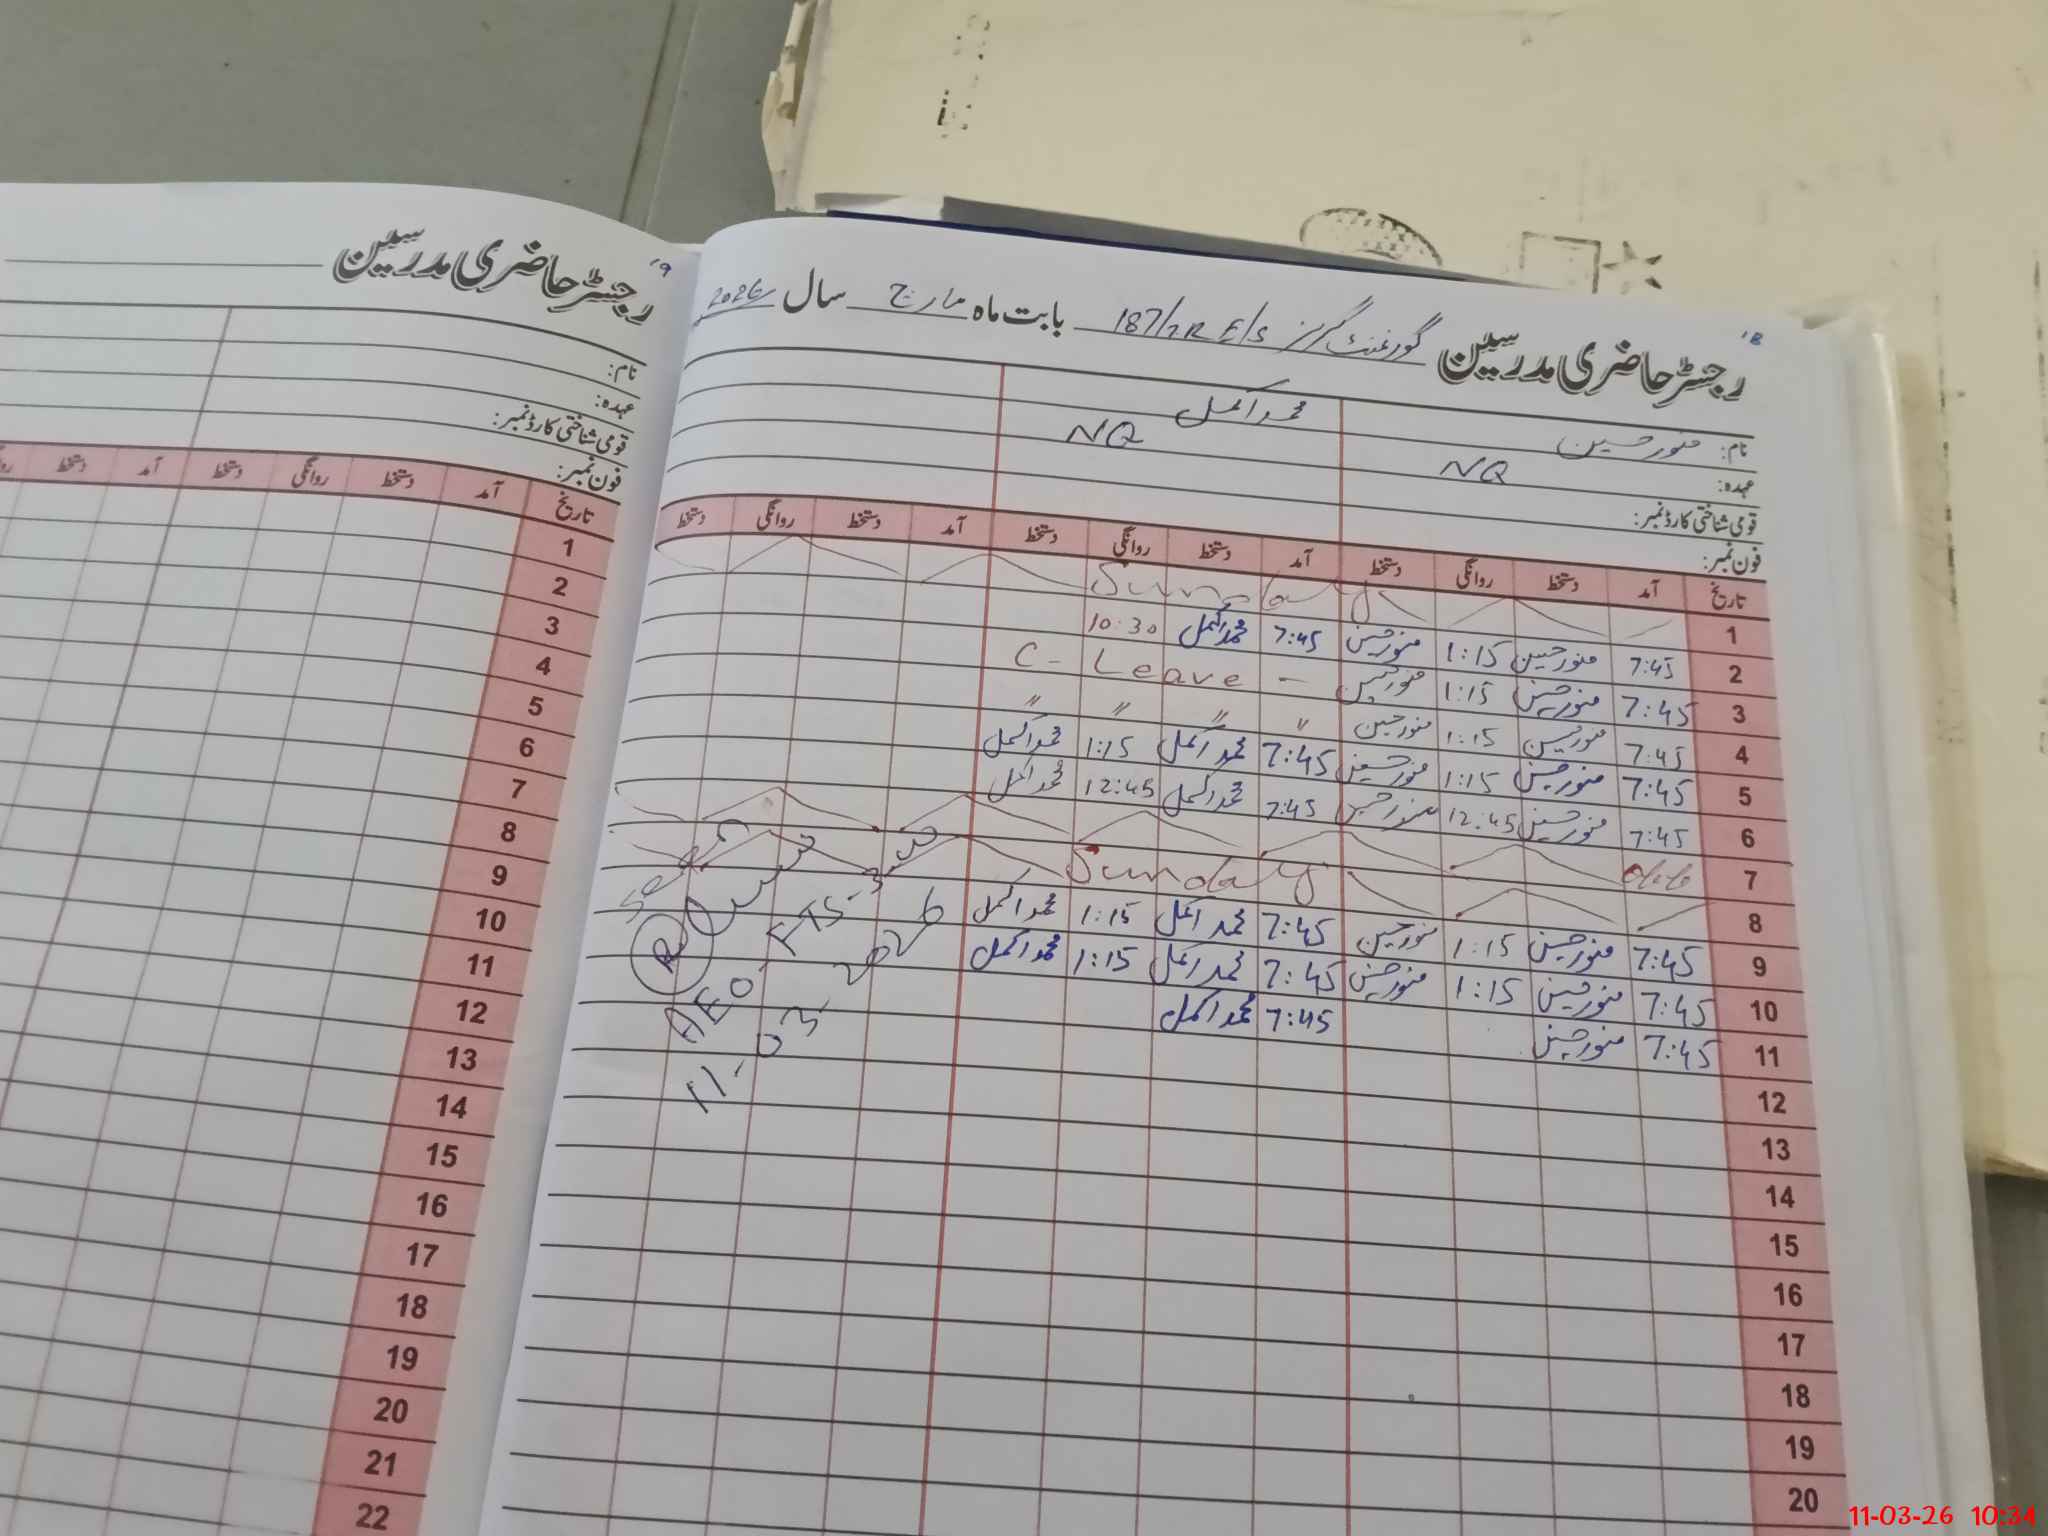 رجسٹر حاضری مدرسین گورنمنٹ گرلز 187/7R E/S بابت ماہ مارچ سال 2026
18
نام: منور حسین محمد اکمل
عہدہ: NQ NQ
قومی شناختی کارڈ نمبر:
فون نمبر:
تاریخ آمد دستخط روانگی دستخط آمد دستخط روانگی دستخط آمد دستخط روانگی دستخط
1 Sunday
2 7:45 منور حسین 1:15 منور حسین 7:45 محمد اکمل 10:30
3 7:45 منور حسین 1:15 منور حسین C - Leave -
4 7:45 منور حسین 1:15 منور حسین " " " "
5 7:45 منور حسین 1:15 منور حسین 7:45 محمد اکمل 1:15 محمد اکمل
6 7:45 منور حسین 12:45 منور حسین 7:45 محمد اکمل 12:45 محمد اکمل
7
8 Sunday
9 7:45 منور حسین 1:15 منور حسین 7:45 محمد اکمل 1:15 محمد اکمل
10 7:45 منور حسین 1:15 منور حسین 7:45 محمد اکمل 1:15 محمد اکمل
11 7:45 منور حسین 7:45 محمد اکمل
12
13
14
15
16
17
18
19
20
Seen
R
AEO FTS-3
11-03-2026
رجسٹر حاضری مدرسین
19
نام:
عہدہ:
قومی شناختی کارڈ نمبر:
فون نمبر:
تاریخ آمد دستخط روانگی دستخط آمد دستخط
1
2
3
4
5
6
7
8
9
10
11
12
13
14
15
16
17
18
19
20
21
22
11-03-26 10:34